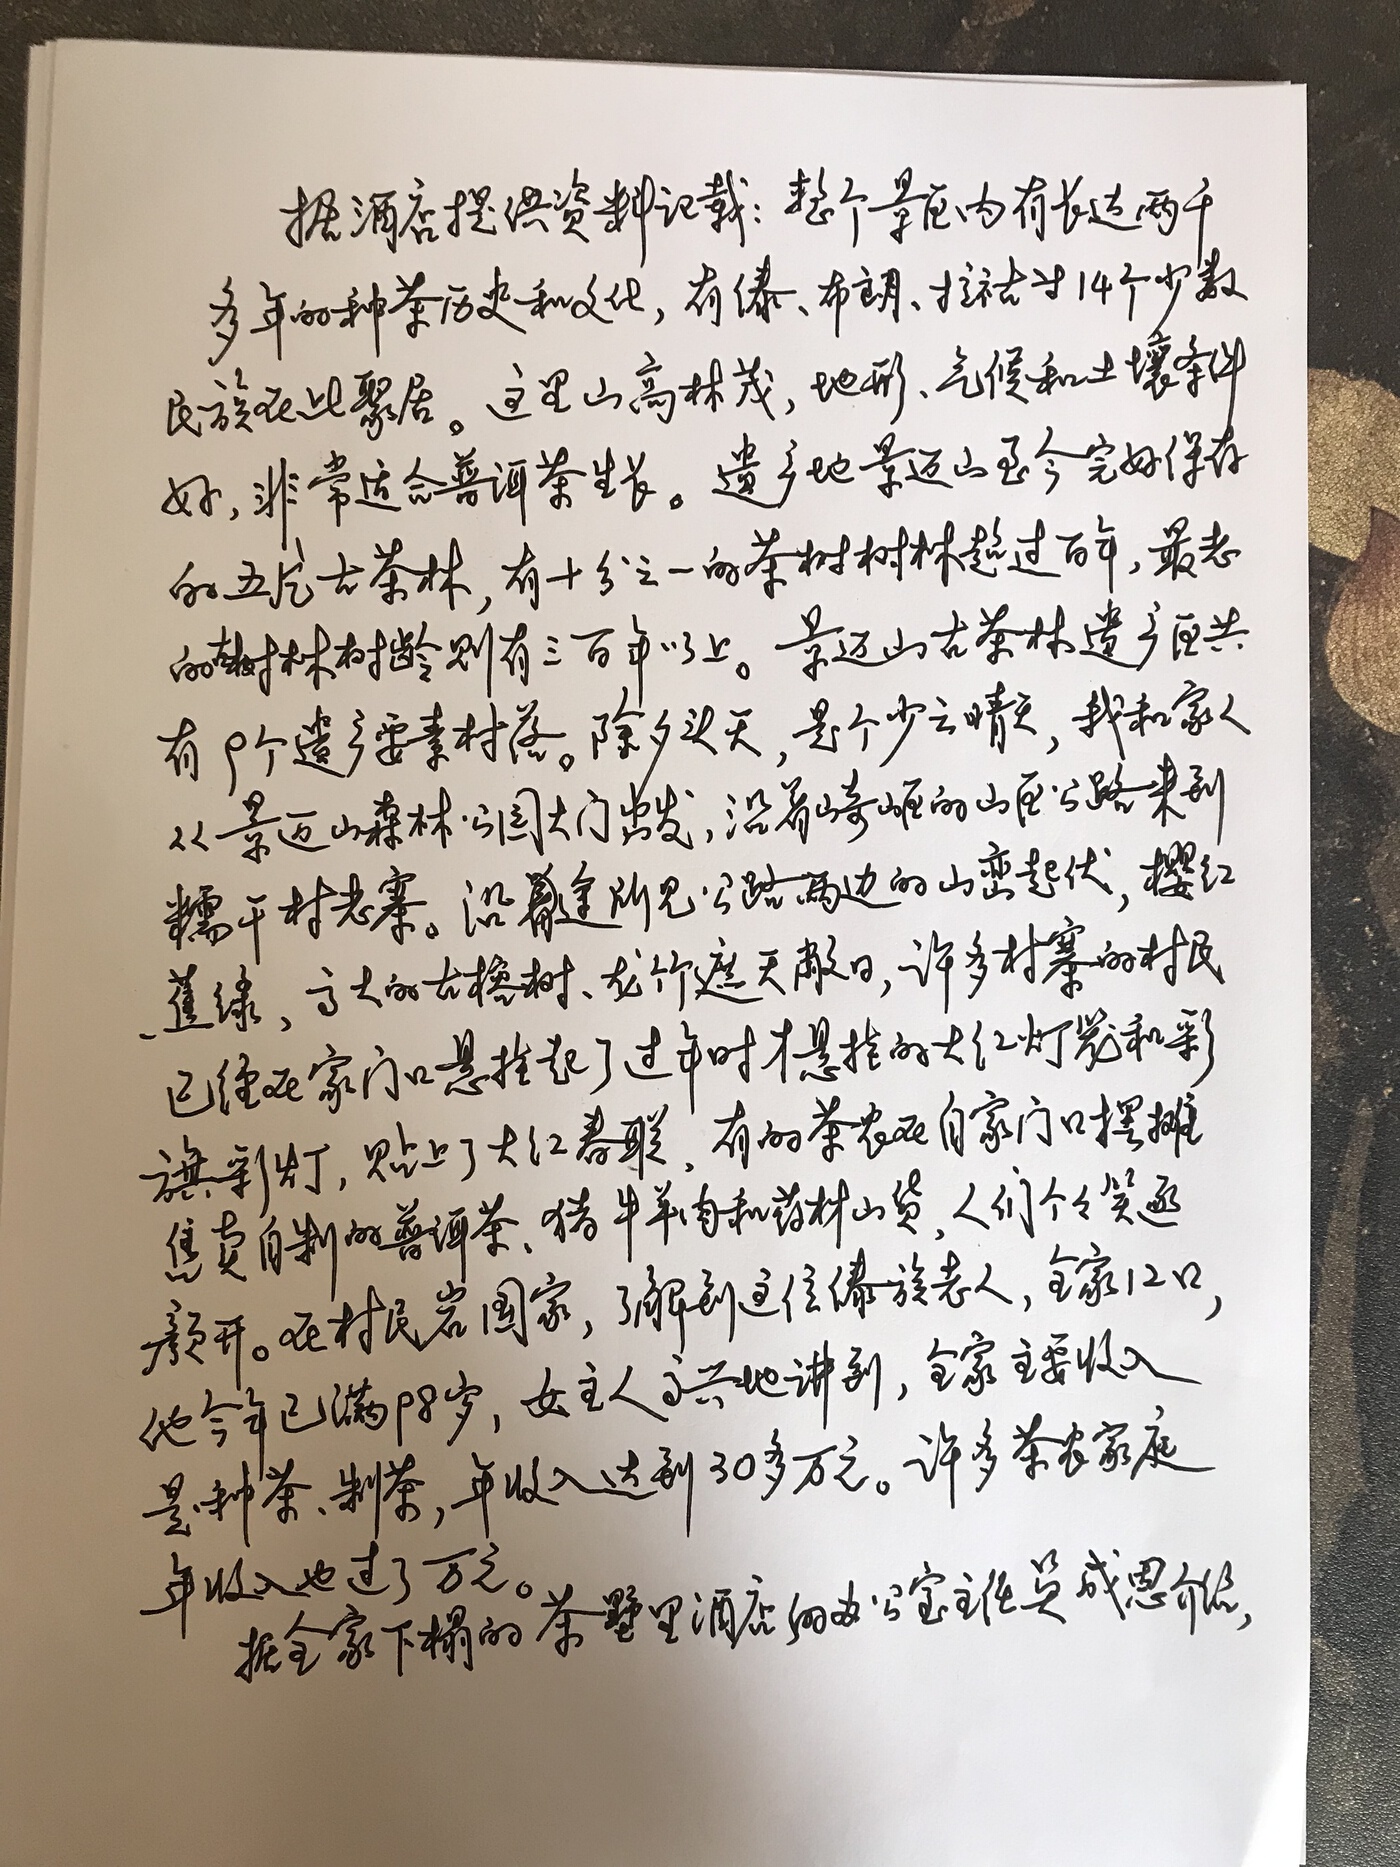 据酒店提供资料记载：整个景区内有长达两千
多年的种茶历史和文化，有傣、布朗、拉祜等14个少数
民族在此聚居。这里山高林茂，地形、气候和土壤条件
好，非常适合普洱茶生长。遗产地景迈山至今完好保存
的五片古茶林，有十分之一的茶树树林超过百年，最老
的树林树龄则有三百年以上。景迈山古茶林遗产区共
有9个遗产要素村落。除夕头天，是个少云晴天，我和家人
从景迈山森林公园大门出发，沿着崎岖的山区公路来到
糯干村老寨。沿途所见公路两边的山峦起伏，樱红
蕉绿，高大的古榕树、龙竹遮天蔽日，许多村寨的村民
已经在家门口悬挂起了过年时才悬挂的大红灯笼和彩
旗彩灯，贴上了大红春联，有的茶农在自家门口摆摊
售卖自制的普洱茶、猪牛羊肉和药材山货，人们个个笑逐
颜开。在村民岩国家，了解到这位傣族老人，全家12口，
他今年已满98岁，女主人高兴地讲到，全家主要收入
是种茶、制茶，年收入达到30多万元。许多茶农家庭
年收入也过了万元。
据全家下榻的茶墅里酒店的办公室主任吴成恩介绍，